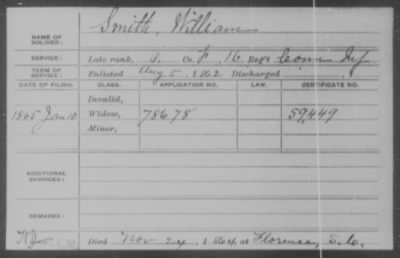 Smith, William
NAME OF SOLDIER:
SERVICE: Late rank, P. Co. F, 16 Reg't Conn Inf
TERM OF SERVICE: Enlisted Aug 5, 1862 Discharged , 1
DATE OF FILING. CLASS. APPLICATION NO. LAW. CERTIFICATE NO.
Invalid,
1865 Jan 10 Widow, 78678 59,449
Minor,
ADDITIONAL SERVICES:
REMARKS:
Died Nov 24, 1864, at Florence, S.C.